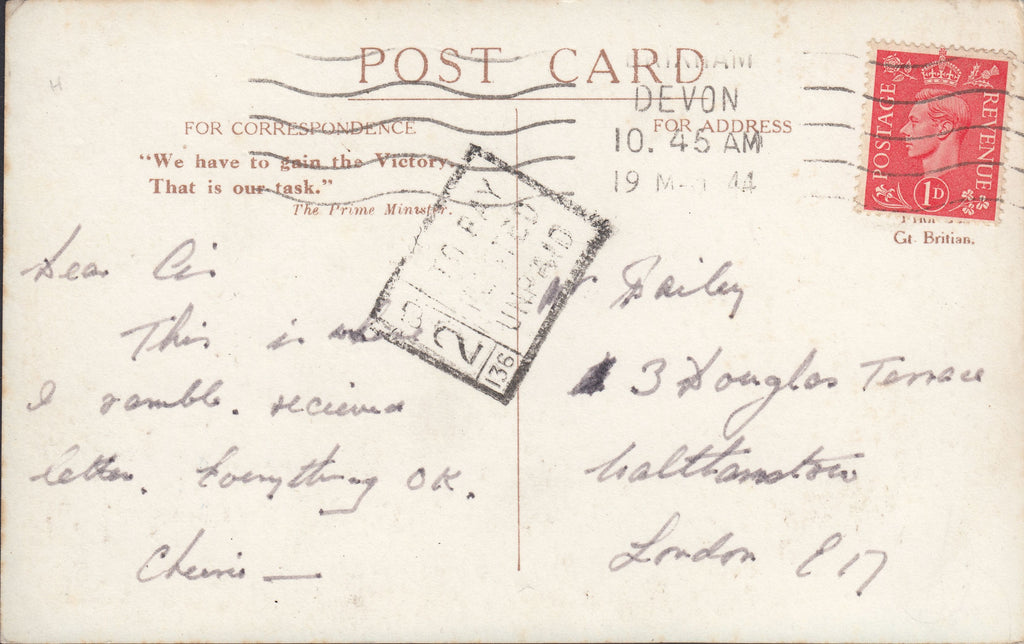 POST CARD
DEVON
10. 45 AM
19 M 44
POSTAGE
REVENUE
1D
FOR CORRESPONDENCE
FOR ADDRESS
"We have to gain the Victory
That is our task."
The Prime Minister
Gt. Britian.
TO PAY
UNPAID
2
136
Dear Cis
This is where
I ramble. recieved
letter. Everything OK.
Cheerio —
Bailey
3 Douglas Terrace
Walthamstow
London E 17